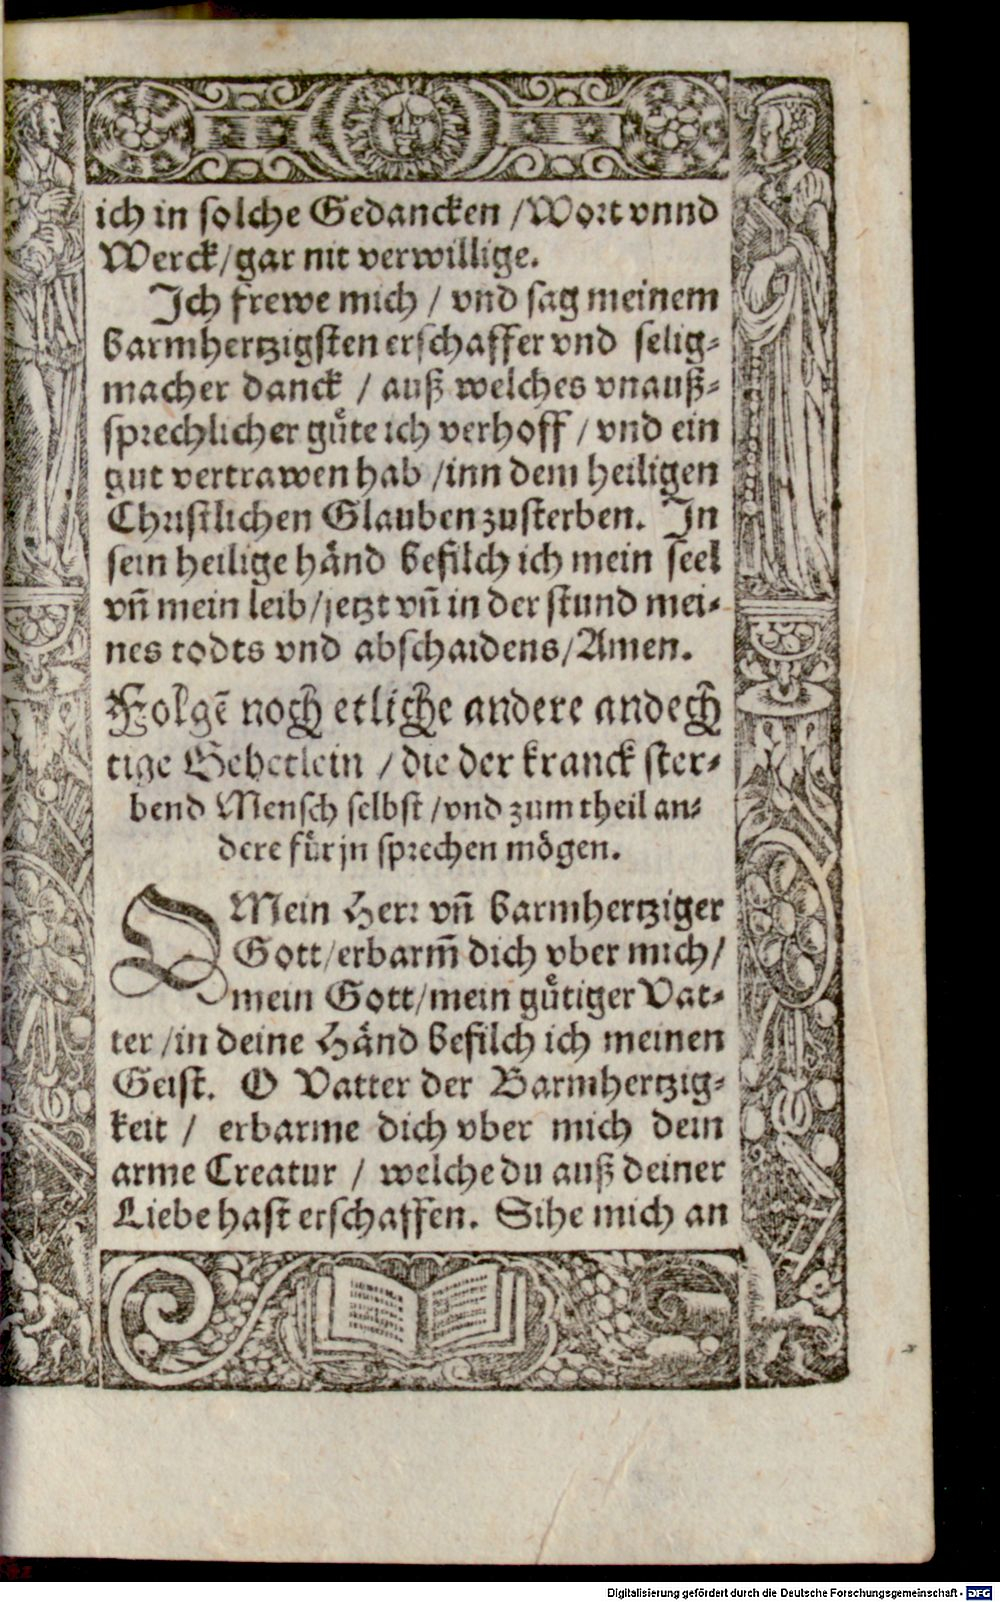 ich in solche Gedancken /Wort vnnd
Werck/gar nit verwillige.
Ich frewe mich / vnd sag meinem
barmhertzigsten erschaffer vnd selig⸗
macher danck / auß welches vnauß⸗
sprechlicher gůte ich verhoff / vnd ein
gut vertrawen hab /inn dem heiligen
Christlichen Glauben zusterben. In
sein heilige hånd befilch ich mein seel
vñ mein leib/jetzt vñ in der stund mei⸗
nes todts vnd abschaidens/Amen.
Folgē noch etliche andere andech
tige Gebetlein / die der kranck ster⸗
bend Mensch selbst /vnd zum theil an⸗
dere fůr jn sprechen mőgen.
O Mein Herr vñ barmhertziger
Gott/erbarm̃ dich vber mich/
mein Gott/mein gůtiger Vat⸗
ter /in deine Hånd befilch ich meinen
Geist. O Vatter der Barmhertzig⸗
keit / erbarme dich vber mich dein
arme Creatur / welche du auß deiner
Liebe hast erschaffen. Sihe mich an
Digitalisierung gefördert durch die Deutsche Forschungsgemeinschaft - DFG